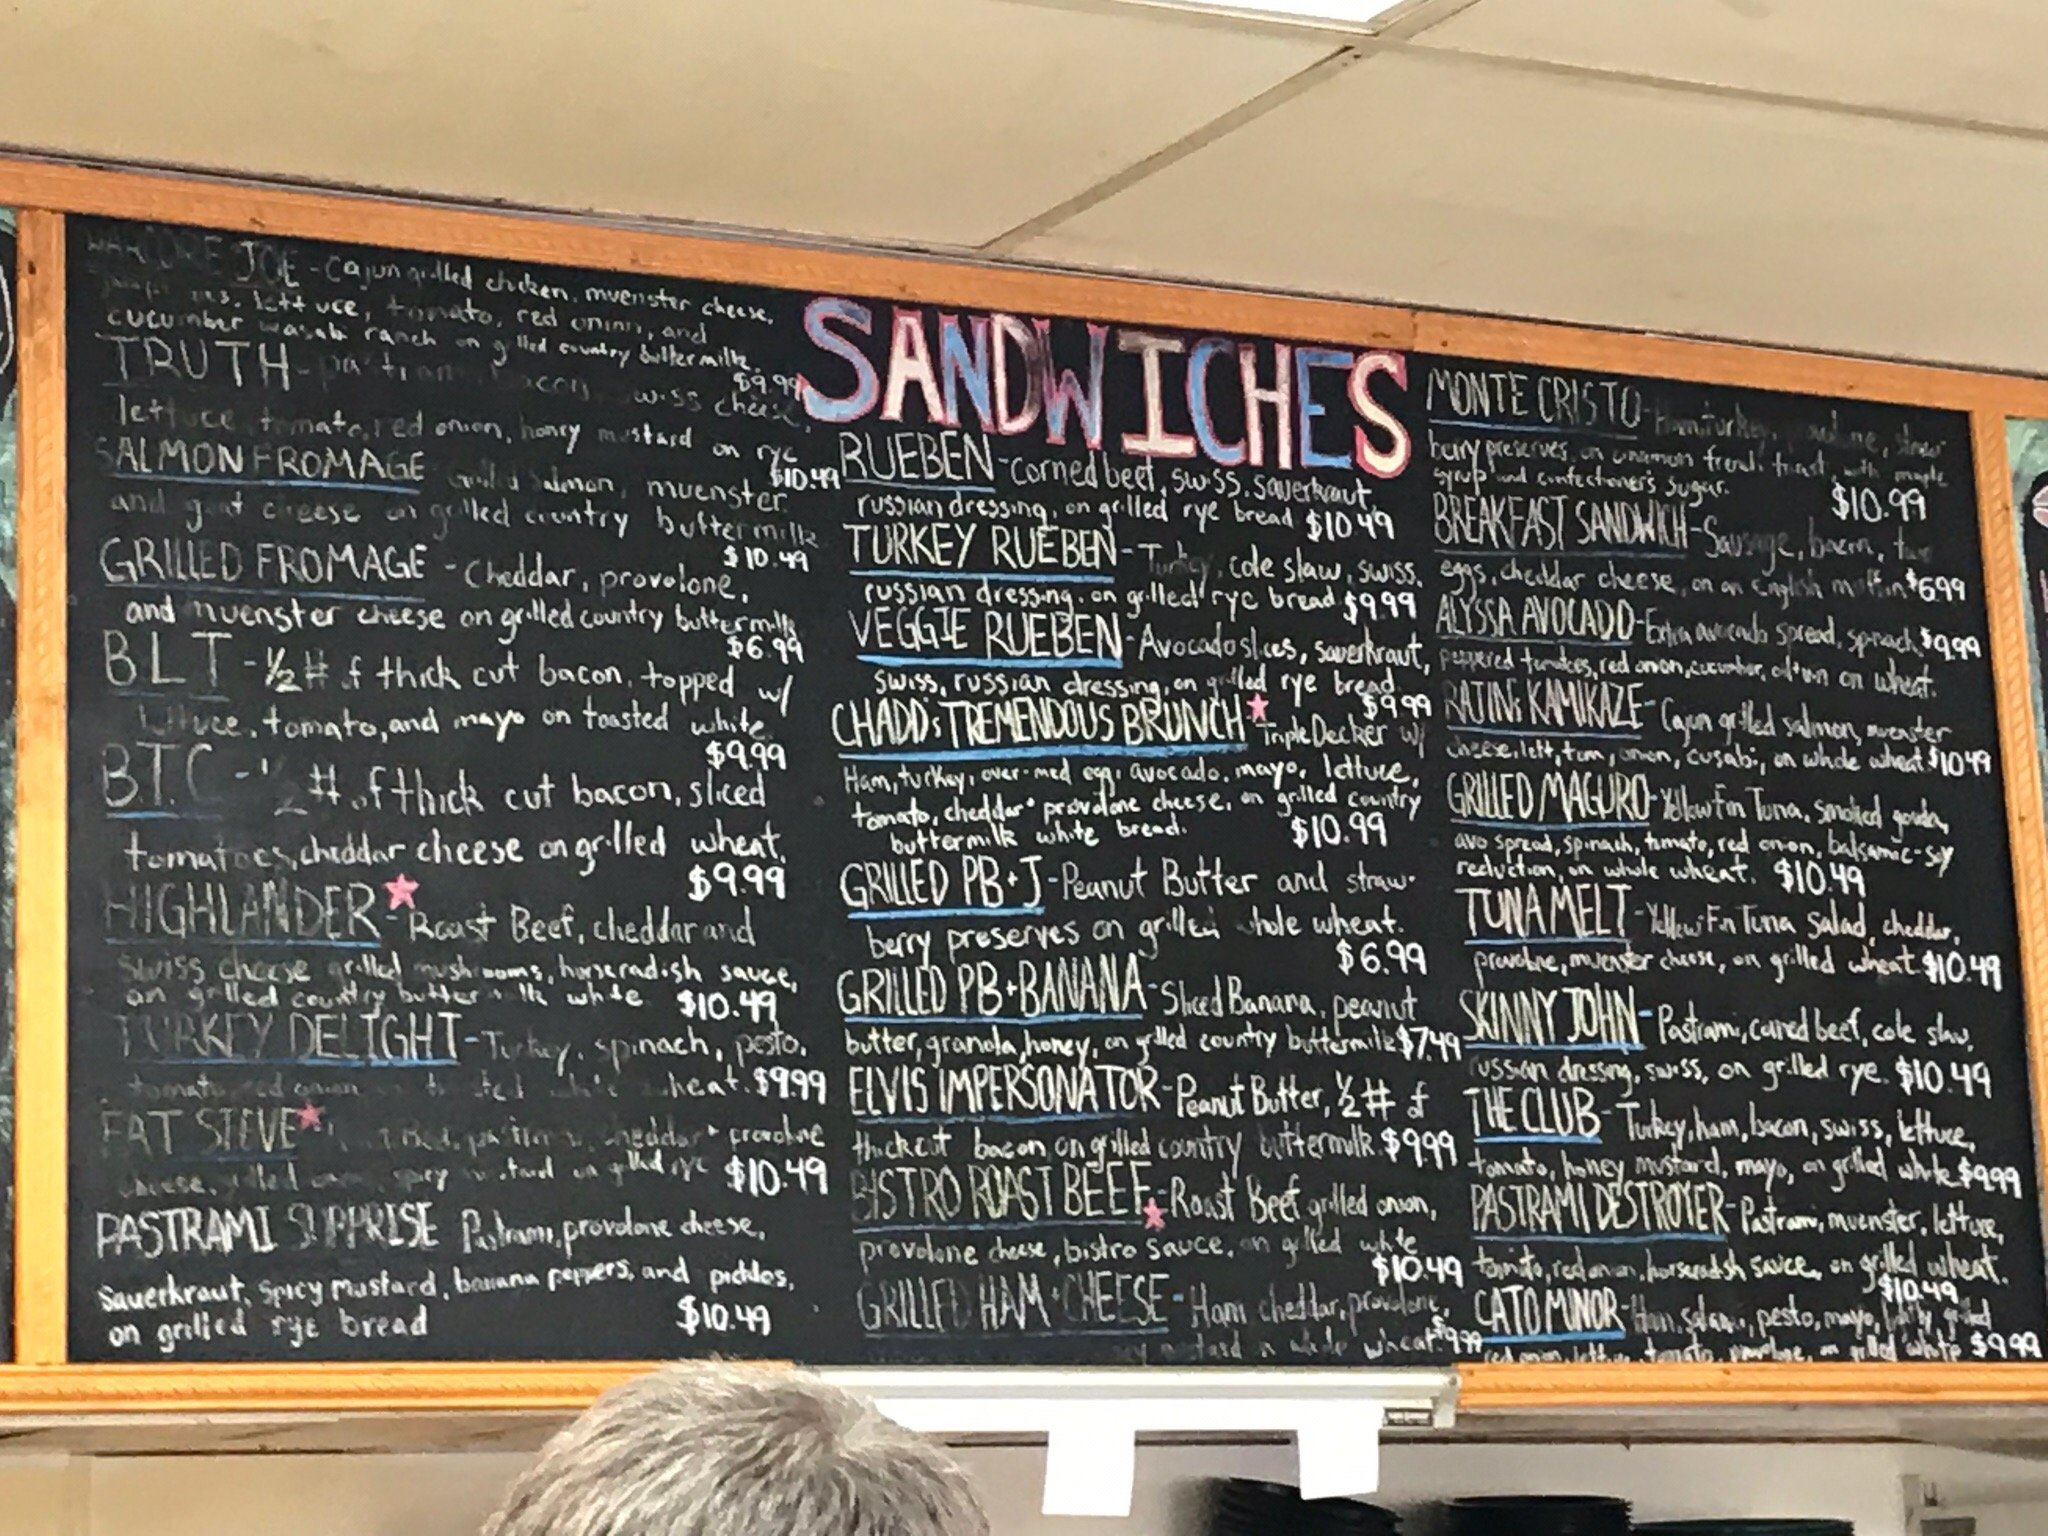 JOE - Cajun grilled chicken, muenster cheese,
lettuce, tomato, red onion, and
cucumber wasabi ranch on grilled country buttermilk.
$9.99
TRUTH - pastrami, bacon, swiss cheese,
lettuce, tomato, red onion, honey mustard on rye
$10.49
SALMON FROMAGE Grilled Salmon, muenster
and goat cheese on grilled country buttermilk
$10.49
GRILLED FROMAGE - Cheddar, provolone,
and muenster cheese on grilled country buttermilk
$6.99
BLT - 1/2 # of thick cut bacon, topped w/
lettuce, tomato, and mayo on toasted white.
$9.99
B.T.C - 1/2 # of thick cut bacon, sliced
tomatoes, cheddar cheese on grilled wheat.
$9.99
HIGHLANDER - Roast Beef, cheddar and
swiss cheese grilled mushrooms, horseradish sauce,
on grilled country buttermilk white $10.49
TURKEY DELIGHT - Turkey, spinach, pesto,
tomato, red onion toasted whole wheat. $9.99
FAT STEVE pastrami, cheddar + provolone
cheese, grilled onion, spicy mustard on grilled rye $10.49
PASTRAMI SUPPRISE Pastrami, provolone cheese,
sauerkraut, spicy mustard, banana peppers, and pickles,
on grilled rye bread $10.49
SANDWICHES
RUEBEN - corned beef, swiss, sauerkraut,
russian dressing, on grilled rye bread $10.49
TURKEY RUEBEN - Turkey, cole slaw, swiss,
russian dressing, on grilled rye bread $9.99
VEGGIE RUEBEN - Avocado slices, sauerkraut,
swiss, russian dressing, on grilled rye bread
$9.99
CHADD's TREMENDOUS BRUNCH - Triple Decker w/
Ham, turkey, over-med egg, avocado, mayo, lettuce,
tomato, cheddar + provolone cheese, on grilled country
buttermilk white bread. $10.99
GRILLED PB+J - Peanut Butter and straw-
berry preserves on grilled whole wheat.
$6.99
GRILLED PB+BANANA - Sliced Banana, peanut
butter, granola, honey, on grilled country buttermilk $7.49
ELVIS IMPERSONATOR - Peanut Butter, 1/2 # of
thick cut bacon on grilled country buttermilk. $9.99
BISTRO ROAST BEEF - Roast Beef grilled onion,
provolone cheese, bistro sauce, on grilled white
$10.49
GRILLED HAM + CHEESE - Ham, cheddar, provolone,
mustard on whole wheat. $9.99
MONTE CRISTO - Ham, turkey, straw-
berry preserves, on cinnamon french toast, with maple
syrup and confectioner's sugar. $10.99
BREAKFAST SANDWICH - Sausage, bacon, two
eggs, cheddar cheese, on an English muffin $6.99
ALYSSA AVOCADO - Extra avocado spread, spinach, $9.99
peppered tomatoes, red onion, cucumber, on wheat.
KAMIKAZE - Cajun grilled salmon, muenster
cheese, lett, tom, onion, cusabi, on whole wheat $10.49
GRILLED MAGURO - Yellow Fin Tuna, smoked gouda,
avo spread, spinach, tomato, red onion, balsamic-soy
reduction, on whole wheat. $10.49
TUNA MELT - Yellow Fin Tuna Salad, cheddar,
provolone, muenster cheese, on grilled wheat $10.49
SKINNY JOHN - Pastrami, corned beef, cole slaw,
russian dressing, swiss, on grilled rye. $10.49
THE CLUB - Turkey, ham, bacon, swiss, lettuce,
tomato, honey mustard, mayo, on grilled white $9.99
PASTRAMI DESTROYER - Pastrami, muenster, lettuce,
tomato, red onion, horseradish sauce, on grilled wheat.
$10.49
CATO MINOR - Ham, salami, pesto, mayo, lightly grilled
red onion, lettuce, tomato, provolone, on grilled white $9.99